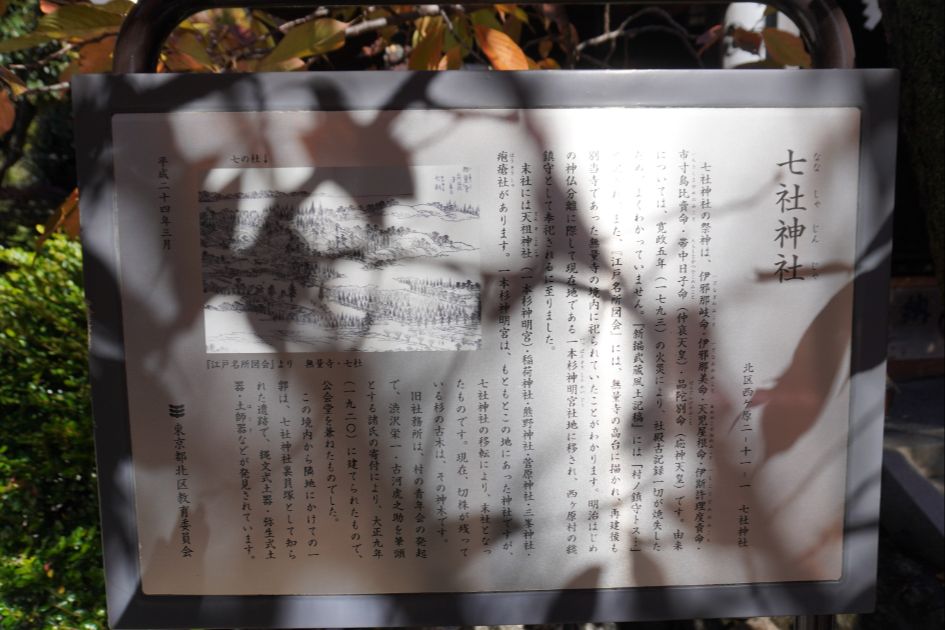 七社神社
なな しゃ じん じゃ
北区西ケ原二-十一-一 七社神社
七社神社の祭神は、伊邪那岐命・伊邪那美命・天児屋根命・伊斯許理度売命・
市寸島比売命・帯中日子命(仲哀天皇)・品陀別命(応神天皇)です。由来
については、寛政五年(一七九三)の火災により、社殿古記録一切が焼失した
ため、よくわかっていません。『新編武蔵風土記稿』には「村ノ鎮守トス
また、『江戸名所図会』には、無量寺の高台に描かれ、再建後も
別当寺であった無量寺の境内に祀られていたことがわかります。明治はじめ
の神仏分離に際して現在地である一本杉神明宮社地に移され、西ヶ原村の総
鎮守として奉祀されるに至りました。
末社には天祖神社(一本杉神明宮)・稲荷神社・熊野神社・菅原神社・三峯神社・
疱瘡社があります。一本杉神明宮は、もともとこの地にあった神社ですが、
七社神社の移転により、末社となっ
たものです。現在、切株が残って
いる杉の古木は、その神木です。
旧社務所は、村の青年会の発起
で、渋沢栄一・古河虎之助を筆頭
とする諸氏の寄付により、大正九年
(一九二〇)に建てられたもので、
公会堂を兼ねたものでした。
この境内から隣地にかけての一
郭は、七社神社裏貝塚として知ら
れた遺跡で、縄文式土器・弥生式土
器・土師器などが発見されています。
七の社↓
『江戸名所図会』より 無量寺・七社
平成二十四年三月
東京都北区教育委員会